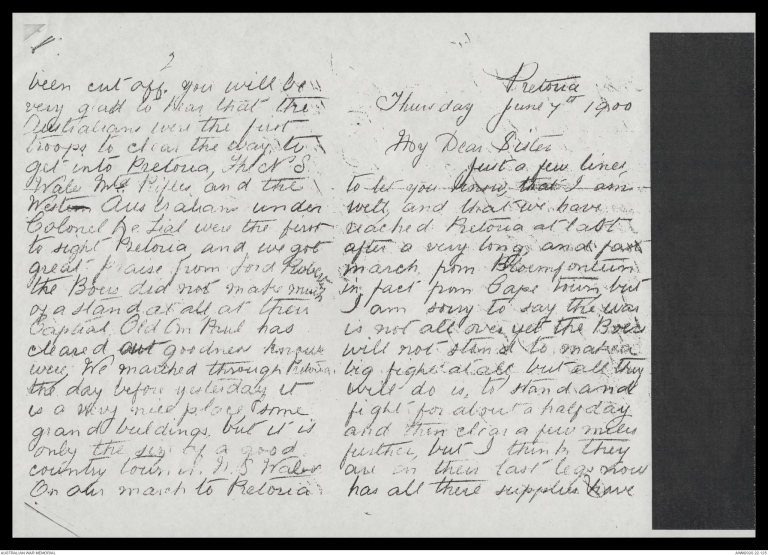 Pretoria
Thursday June 7th 1900
My Dear Sister
Just a few lines
to let you know that I am
well, and that we have
reached Pretoria at last
after a very long and fast
march from Bloemfontein
in fact from Cape town, but
I am sorry to say the war
is not all over yet the Boers
will not stand to make a
big fight at all but all they
will do is, to stand and
fight for about a half day
and then clear a few miles
further, but I think they
are on their last legs now
has all there supplies have
2
been cut off. you will be
very glad to hear that the
Australians were the first
troops to clear the way to
get into Pretoria, The N S
Wales Mt. Rifles, and the
Western Australians under
Colonel De Lisl were the first
to sight Pretoria and we got
great praise from Lord Roberts
the Boers did not make much
of a stand at all at their
Capital, Old Om Paul has
cleared out goodness knows
were, We marched through Pretoria
the day before yesterday it
is a very nice place some
grand buildings, but it is
only the size of a good
country town in N. S Wales
On our march to Pretoria
AUSTRALIAN WAR MEMORIAL